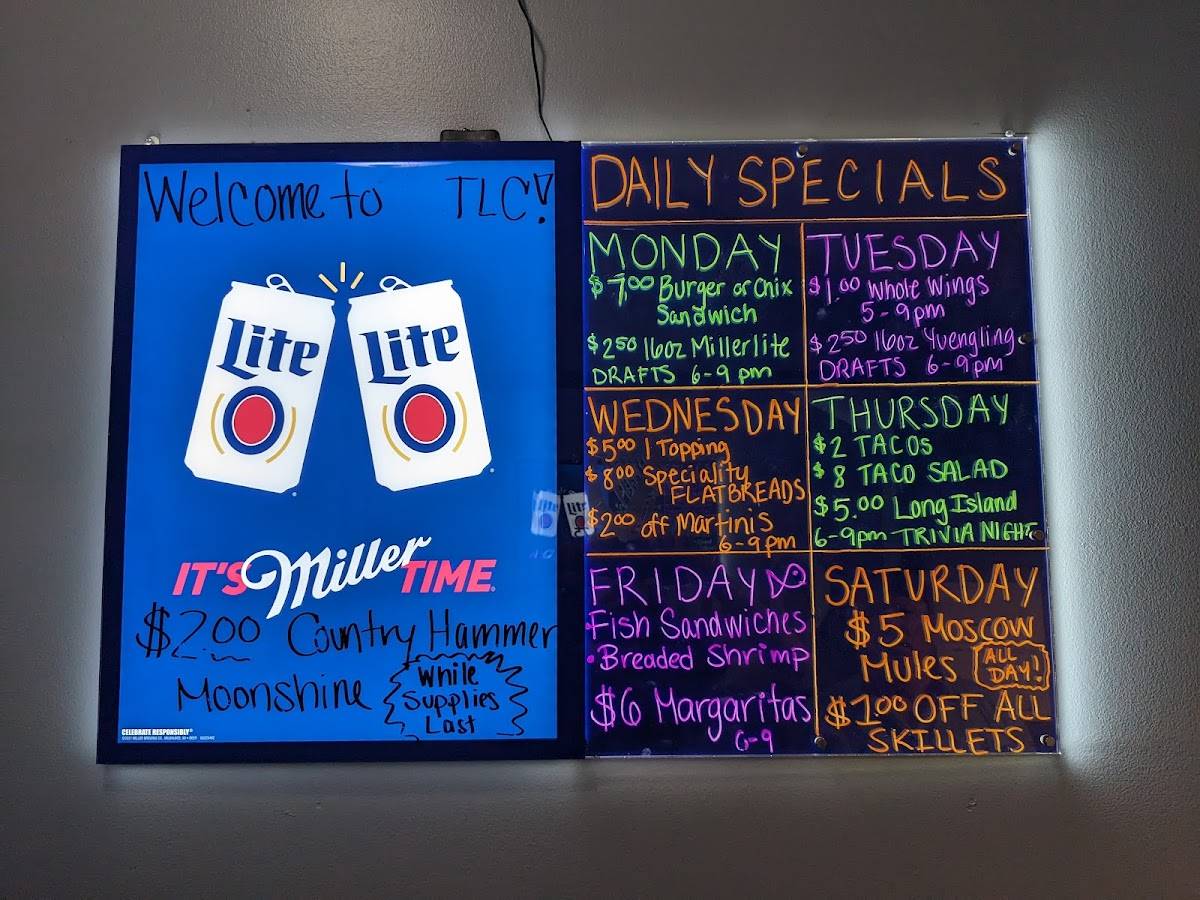 Welcome to TLC!
Lite
Lite
IT'S Miller TIME.
$2.00 Country Hammer
Moonshine
While
Supplies
Last
CELEBRATE RESPONSIBLY®
DAILY SPECIALS
MONDAY
$7.00 Burger or Chix
Sandwich
$2.50 16oz Millerlite
DRAFTS 6-9 pm
TUESDAY
$1.00 Whole Wings
5-9pm
$2.50 16oz Yuengling
DRAFTS 6-9pm
WEDNESDAY
$5.00 1 Topping
$8.00 Speciality
FLATBREADS
$2.00 off Martinis
6-9pm
THURSDAY
$2 TACOS
$8 TACO SALAD
$5.00 Long Island
6-9pm TRIVIA NIGHT
FRIDAY
Fish Sandwiches
•Breaded Shrimp
$6 Margaritas
6-9
SATURDAY
$5 Moscow
Mules
ALL
DAY!
$1.00 OFF ALL
SKILLETS